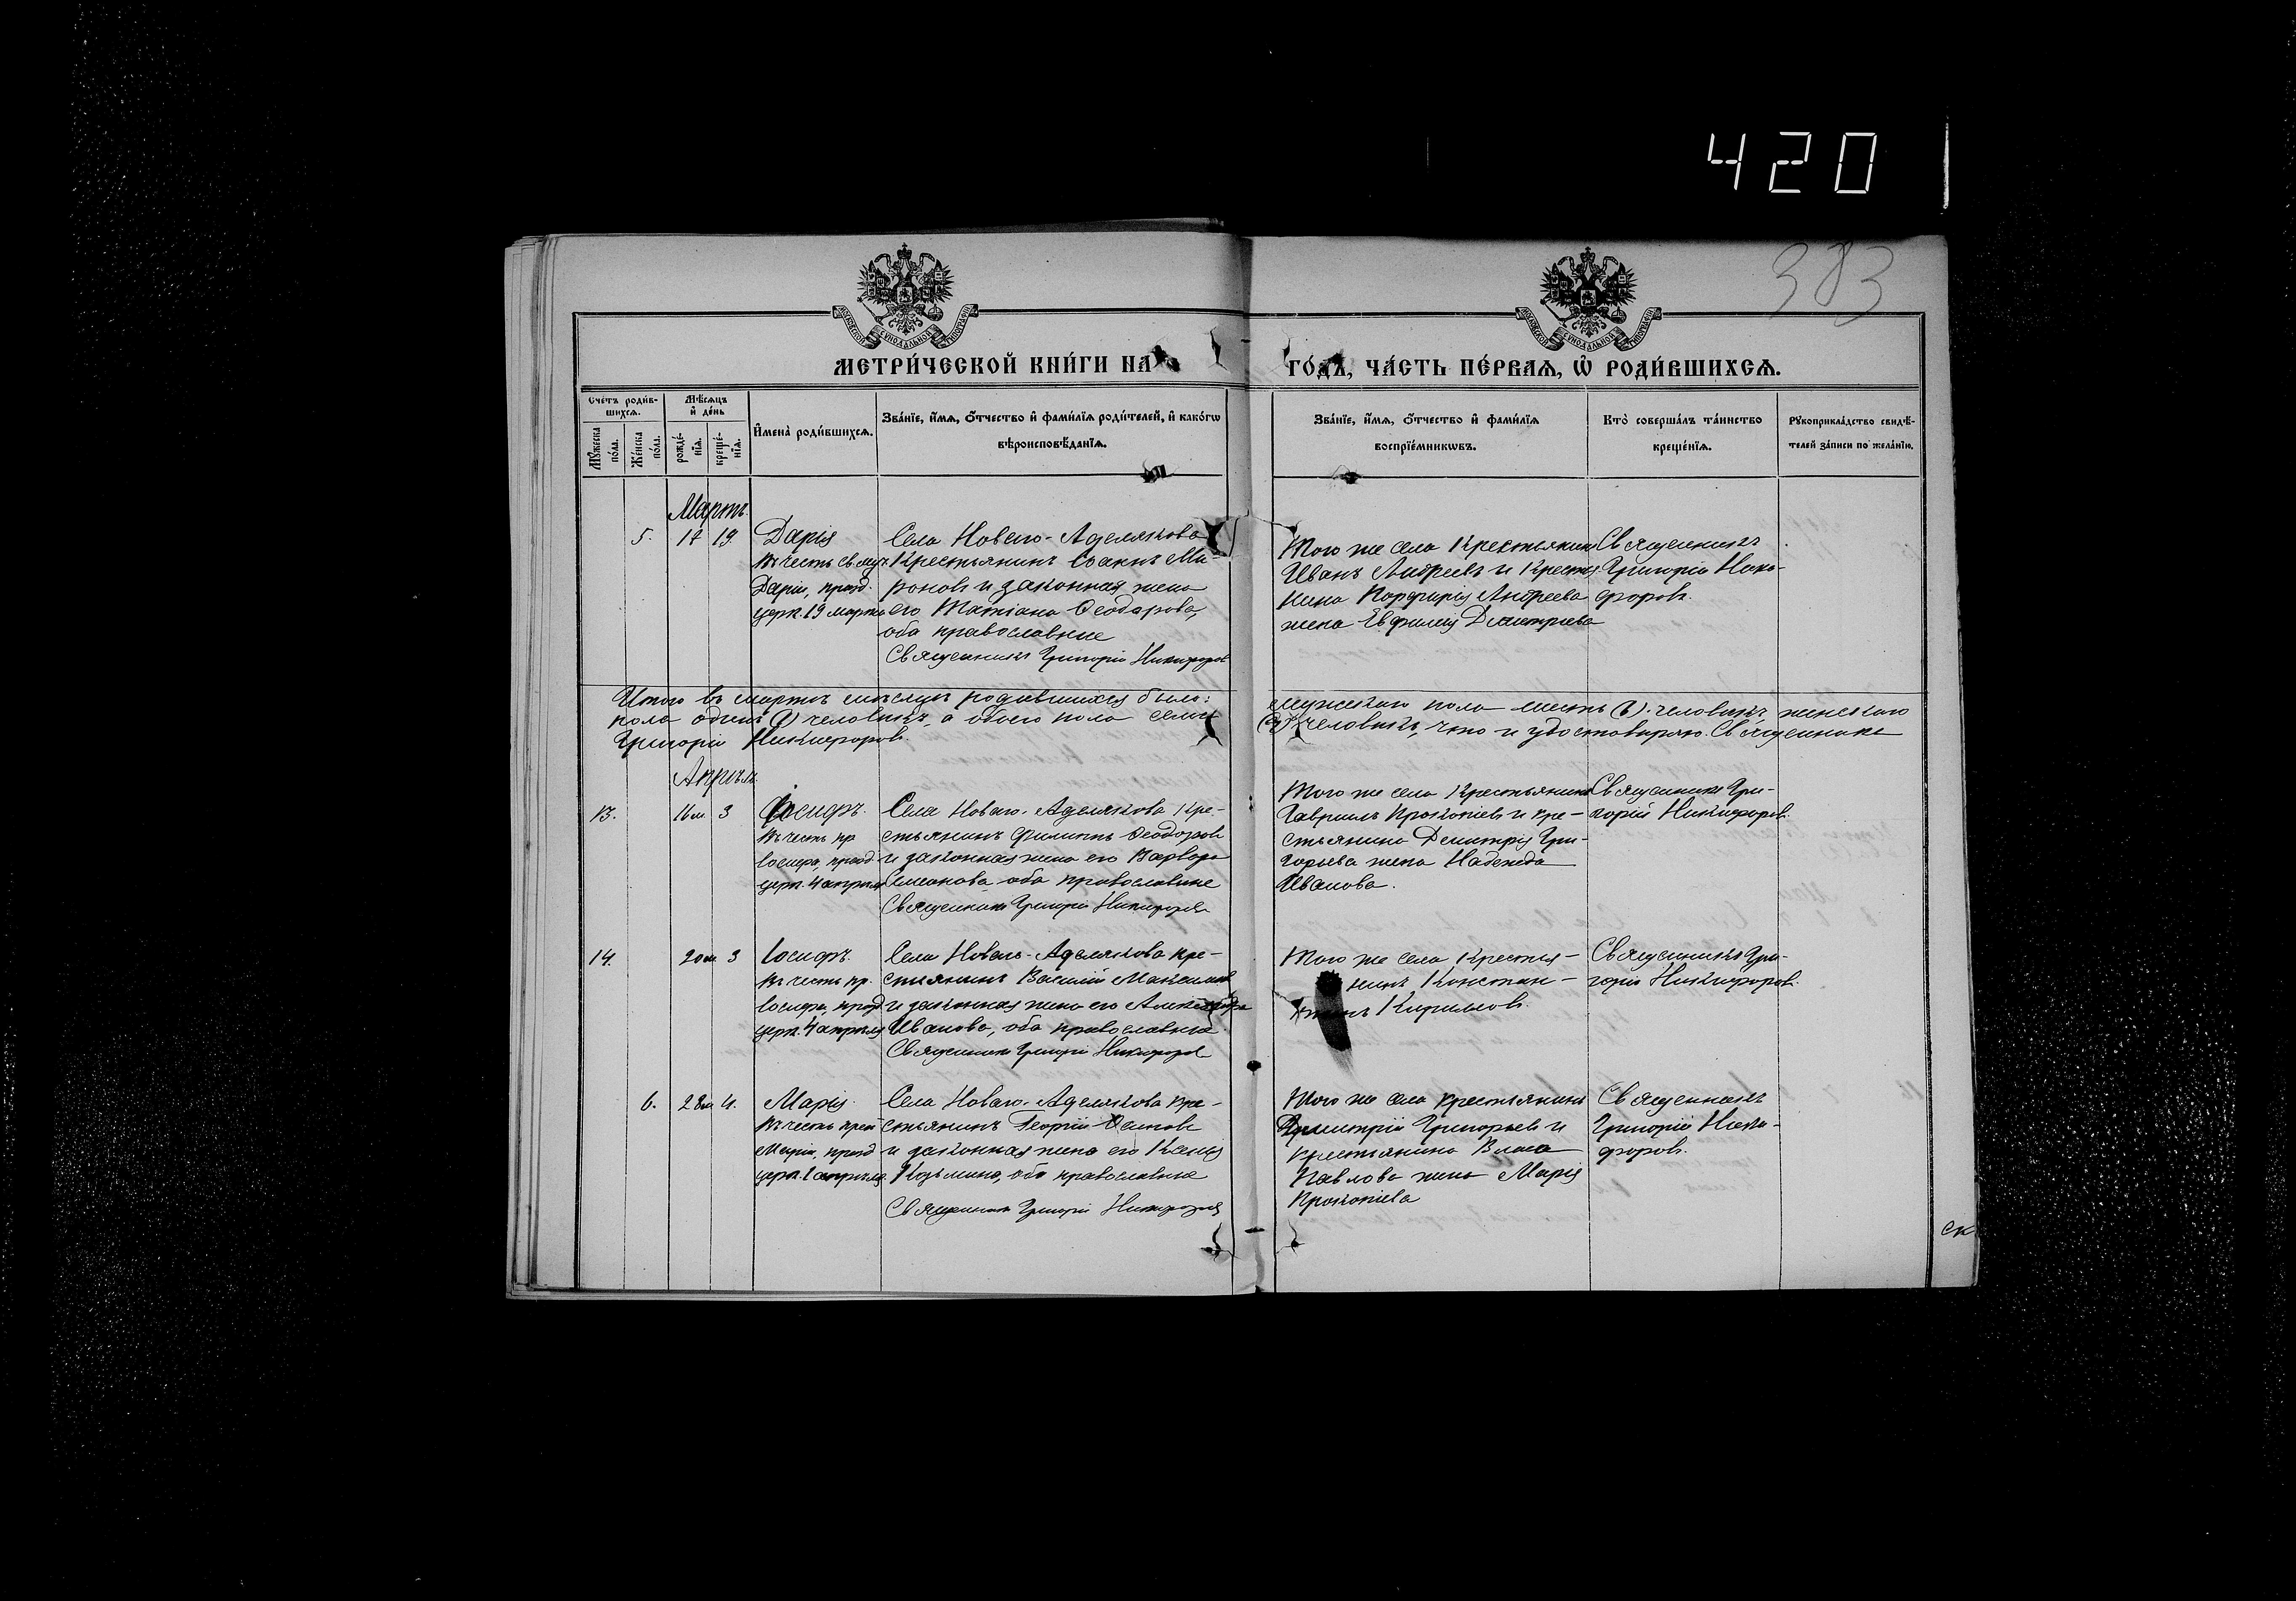 420
383
МОСКОВСКОЙ СѴНОДАЛЬНОЙ ТИПОГРАФІИ
МОСКОВСКОЙ СѴНОДАЛЬНОЙ ТИПОГРАФІИ
МЕТРИ́ЧЕСКОЙ КНИ́ГИ НА
ГО́ДЪ, ЧА́СТЬ ПЕ́РВАѦ, Ѡ РОДИ́ВШИХСѦ.
Сче́тъ роди́в-
шихсѧ.
Мꙋ́жеска по́ла.
Же́нска по́ла.
Мѣ́сѧцъ и҆ де́нь
рожде́-
нїѧ.
креще́-
нїѧ.
И҆мена̀ роди́вшихсѧ.
Зва́нїе, и҆́мѧ, о҆́тчество и҆ фами́лїѧ роди́телей, и҆ како́гѡ
вѣроисповѣ́данїѧ.
Зва́нїе, и҆́мѧ, о҆́тчество и҆ фами́лїѧ
воспрїе́мникѡвъ.
Кто̀ соверша́лъ та́инство
креще́нїѧ.
Рꙋкоприкла́дство свидѣ́-
телей за́писи по жела́нїю.
Мартъ.
5. 17 19. Дарія
въ честь св. муч.
Даріи, празд.
церк. 19 марта
Села Новаго-Аделякова
Крестьянинъ Іоаннъ Ми-
роновъ и законная жена
его Татіана Ѳеодорова,
оба православные
Священникъ Григорій Никифоровъ
Того же села Крестьянинъ
Иванъ Андреевъ и Крестья-
нина Порфирія Андреева
жена Евфимія Димитріева
Священникъ
Григорій Ники-
форовъ.
Итого въ мартѣ мѣсяцѣ родившихся было: мужескаго пола шесть (6) человѣкъ, женскаго
пола одинъ (1) человѣкъ, а обоего пола семь (7) человѣкъ, что и удостовѣряю. Священникъ
Григорій Никифоровъ.
Апрѣль.
13. 16 м. 3 Іосифъ.
въ честь пр.
Іосифа, празд.
церк. 4 апрѣля
Села Новаго-Аделякова Кре-
стьянинъ Филиппъ Ѳеодоровъ
и законная жена его Варвара
Симеонова, оба православные
Священникъ Григорій Никифоровъ
Того же села Крестьянинъ
Гавріилъ Прокопіевъ и кре-
стьянина Димитрія Гри-
горьева жена Надежда
Иванова.
Священникъ Гри-
горій Никифоровъ.
14. 20 м. 3 Іосифъ.
въ честь пр.
Іосифа, празд.
церк. 4 апрѣля
Села Новаго-Аделякова кре-
стьянинъ Василій Максимовъ
и законная жена его Александра
Иванова, оба православные.
Священникъ Григорій Никифоровъ
Того же села Крестья-
нинъ Констан-
тинъ Кириловъ.
Священникъ Гри-
горій Никифоровъ.
6. 28 м. 4. Марія.
въ честь преп.
Маріи, празд.
церк. 1 апрѣля.
Села Новаго-Аделякова кре-
стьянинъ Георгій Осиповъ
и законная жена его Ксенія
Козьмина, оба православные
Священникъ Григорій Никифоровъ
Того же села крестьянинъ
Димитрій Григорьевъ и
крестьянина Власа
Павлова жена Марія
Прокопіева
Священникъ
Григорій Ники-
форовъ.
ск